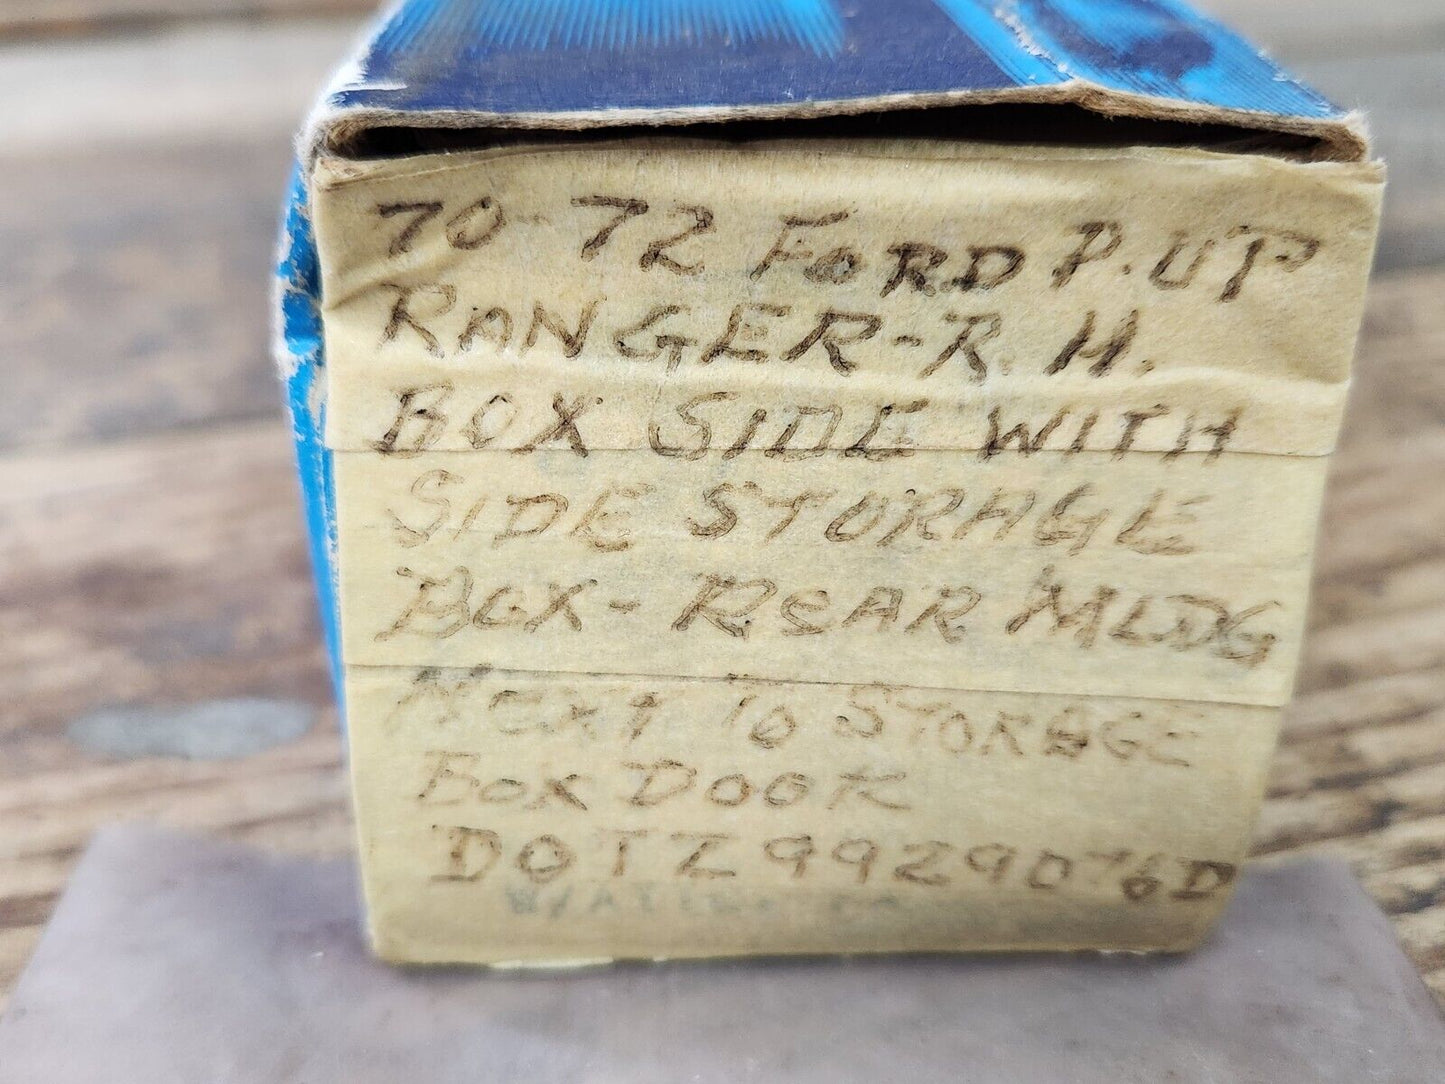 70-72 FORD P.UP
RANGER-R.H.
BOX SIDE WITH
SIDE STORAGE
BOX- REAR MLDG
NEXT TO STORAGE
BOX DOOR
DOTZ9929076D